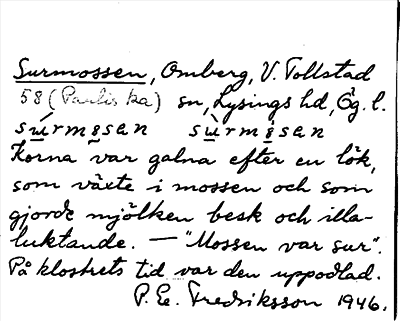 Surmossen, Omberg, V. Tollstad
58 (Paulis ka) sn, Lysings hd, Ög. l.
súrmẹsan sùrmẹ́san
Korna var galna efter en lök,
som växte i mossen och som
gjorde mjölken besk och illa-
luktande. — "Mossen var sur".
På klostrets tid var den uppodlad.
P. E. Fredriksson 1946.